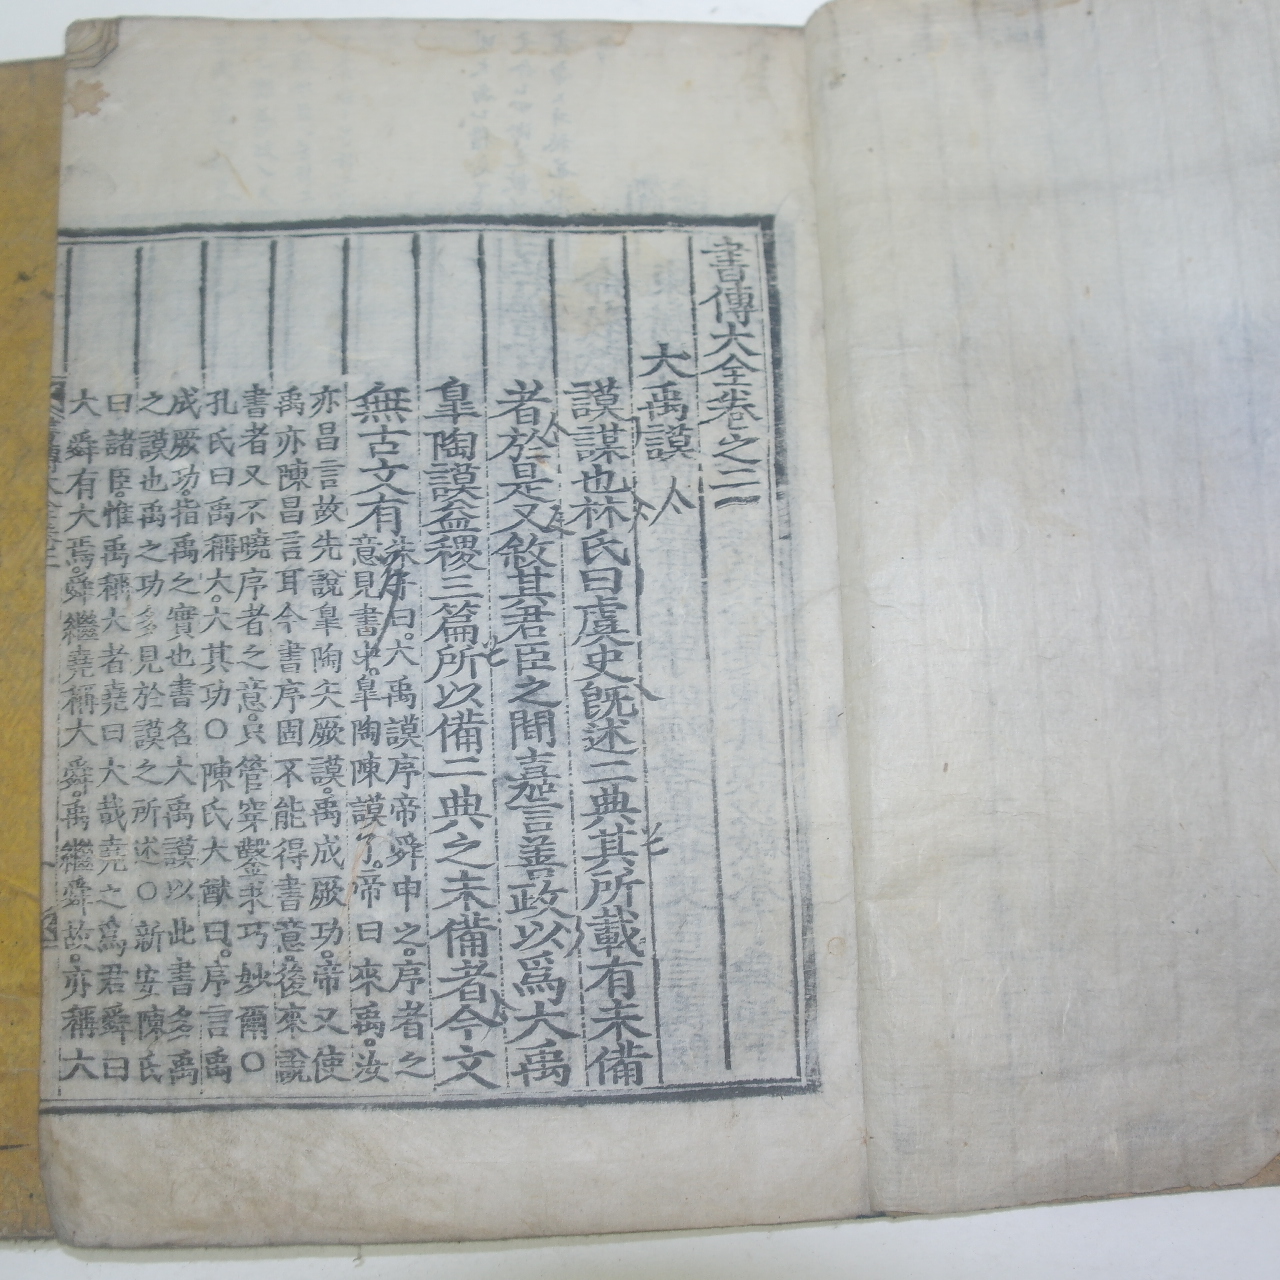 書傳大全卷之二
大禹謨
謨謀也林氏曰虞史旣述二典其所載有未備
者於是又敘其君臣之間嘉言善政以爲大禹
皐陶謨益稷三篇所以備二典之未備者今文
無古文有
朱子曰。大禹謨序帝舜申之。序者之
意見書中。皐陶陳謨了。帝曰來禹。汝
亦昌言故先說皐陶矢厥謨。禹成厥功。帝又使
禹亦陳昌言耳今書序固不能得書意。後來說
書者又不曉序者之意。只管穿鑿求巧妙爾○
孔氏曰禹稱大。大其功○陳氏大猷曰。序言禹
成厥功。指禹之實也書名大禹謨以此書多禹
之謨也禹之功多見於謨之所述○新安陳氏
曰諸臣。惟禹稱大者堯曰大哉堯之爲君舜曰
大舜有大焉。舜繼堯稱大舜。禹繼舜故。亦稱大